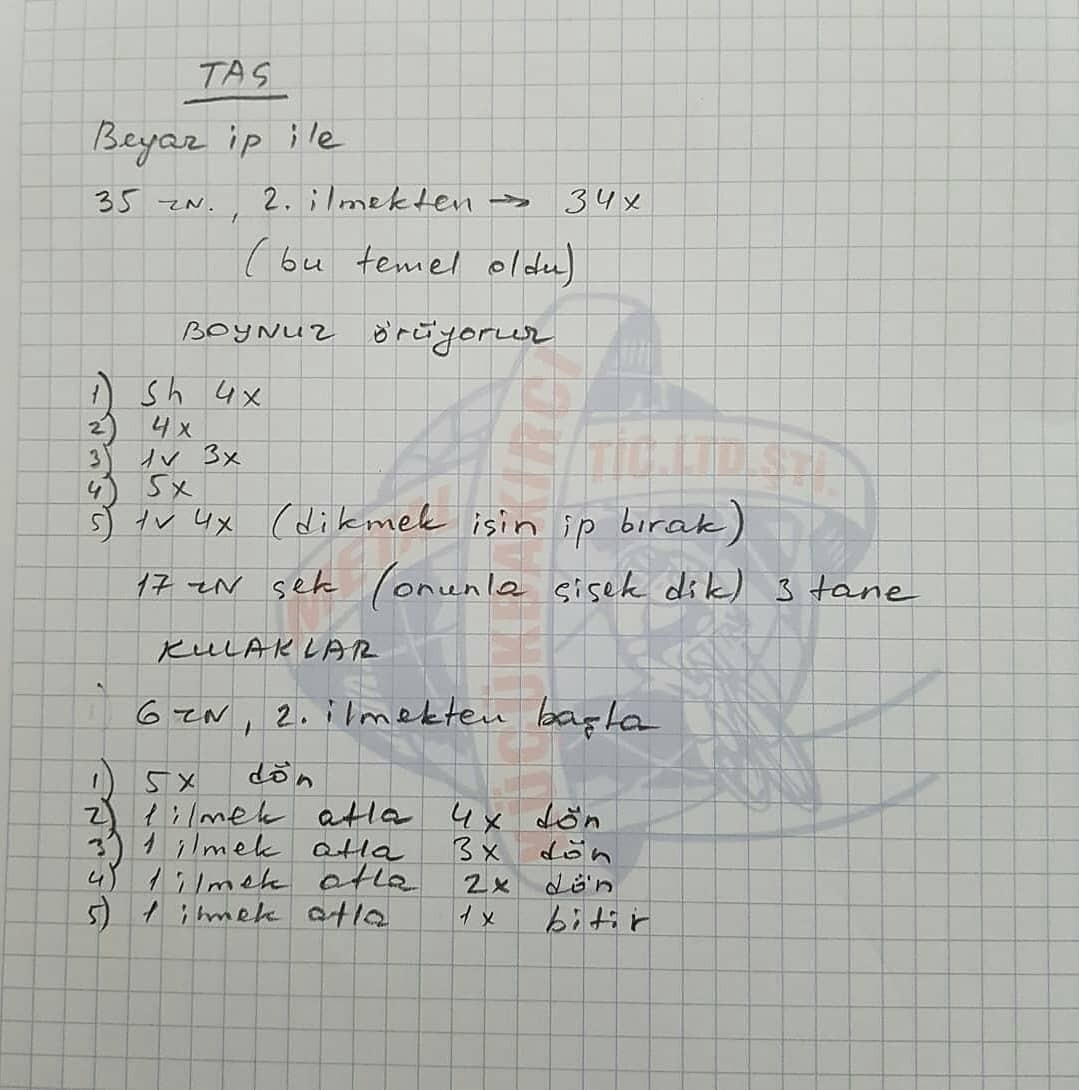 TAS
Beyaz ip ile
35 zN., 2. ilmekten → 34x
(bu temel oldu)
BOYNUZ örüyoruz
1) Sh 4x
2) 4x
3) 1v 3x
4) 5x
5) 1v 4x (dikmek için ip bırak)
17 zN çek (onunla çiçek dik) 3 tane
KULAKLAR
6 zN, 2. ilmekten başla
1) 5x dön
2) 1 ilmek atla 4x dön
3) 1 ilmek atla 3x dön
4) 1 ilmek atla 2x dön
5) 1 ilmek atla 1x bitir
METAL
KÜÇÜKBAKIRCI
TİC.LTD.ŞTİ.